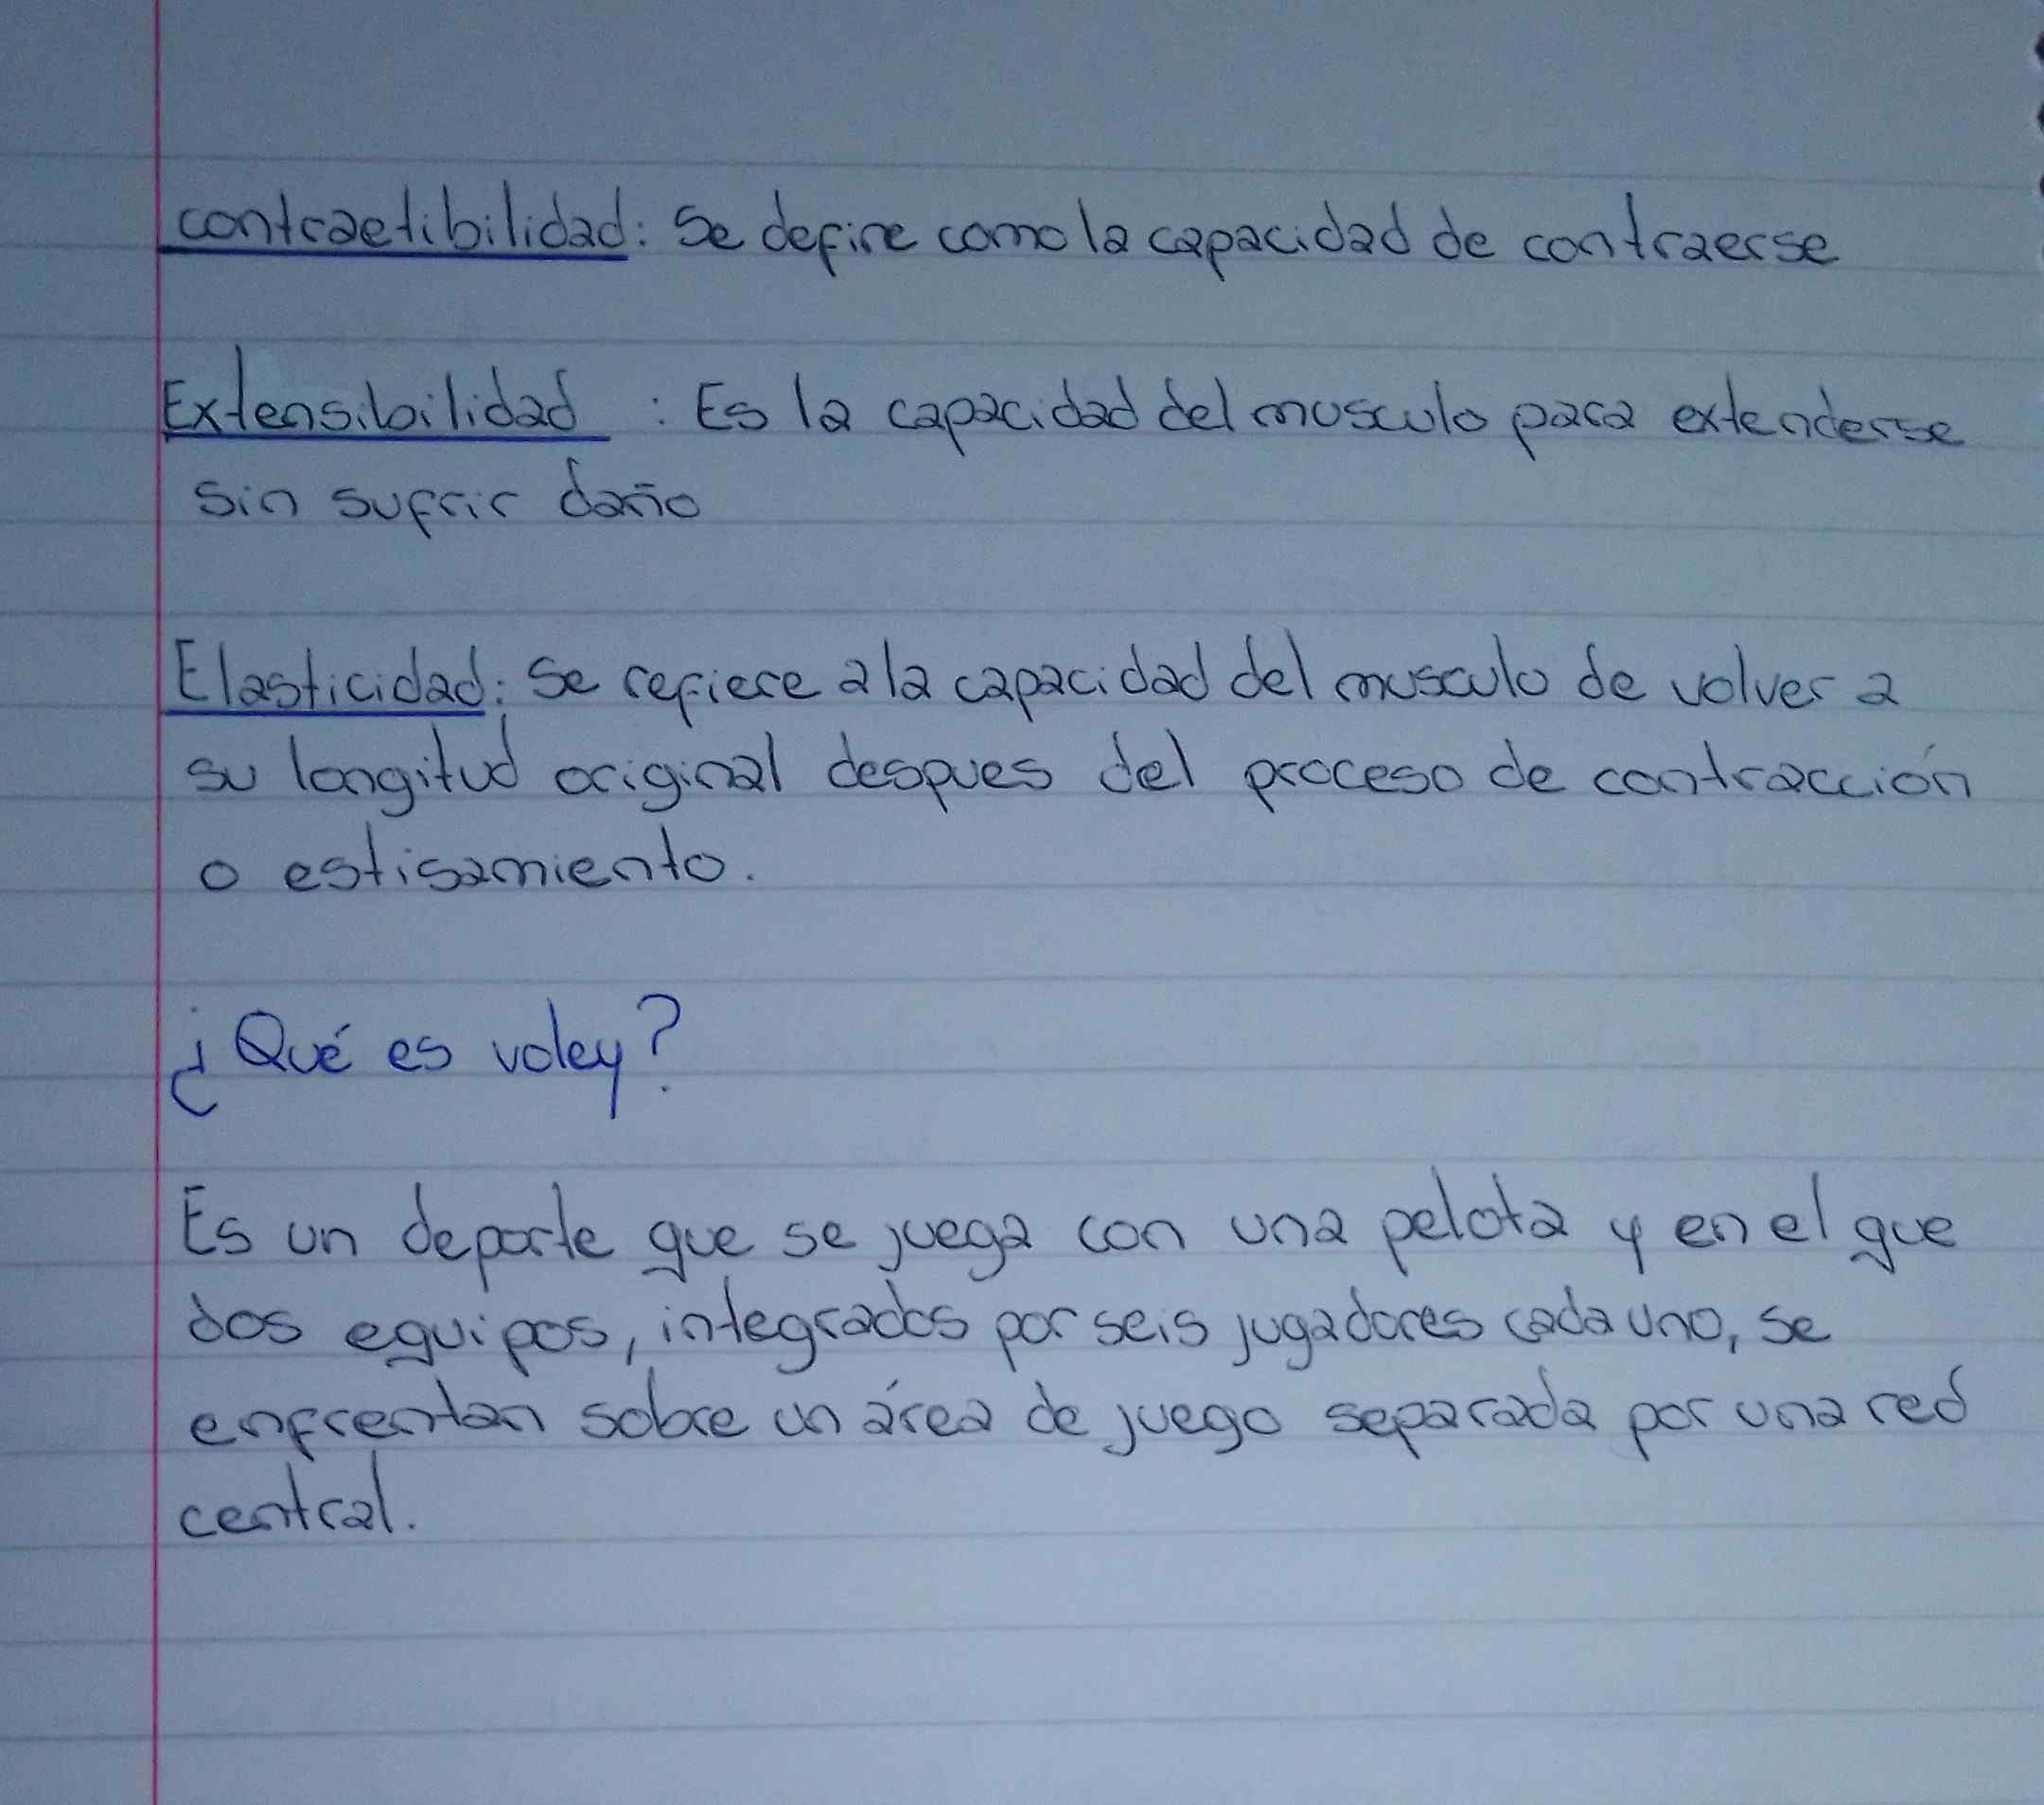 contraetibilidad: Se define como la capacidad de contraerse
Extensibilidad : Es la capacidad del musculo para extenderse
sin sufrir daño
Elasticidad: Se refiere a la capacidad del musculo de volver a
su longitud original despues del proceso de contracción
o estisamiento.
¿Qué es voley?
Es un deporte que se juega con una pelota y en el que
dos equipos, integrados por seis jugadores cada uno, se
enfrentan sobre un área de juego separada por una red
central.